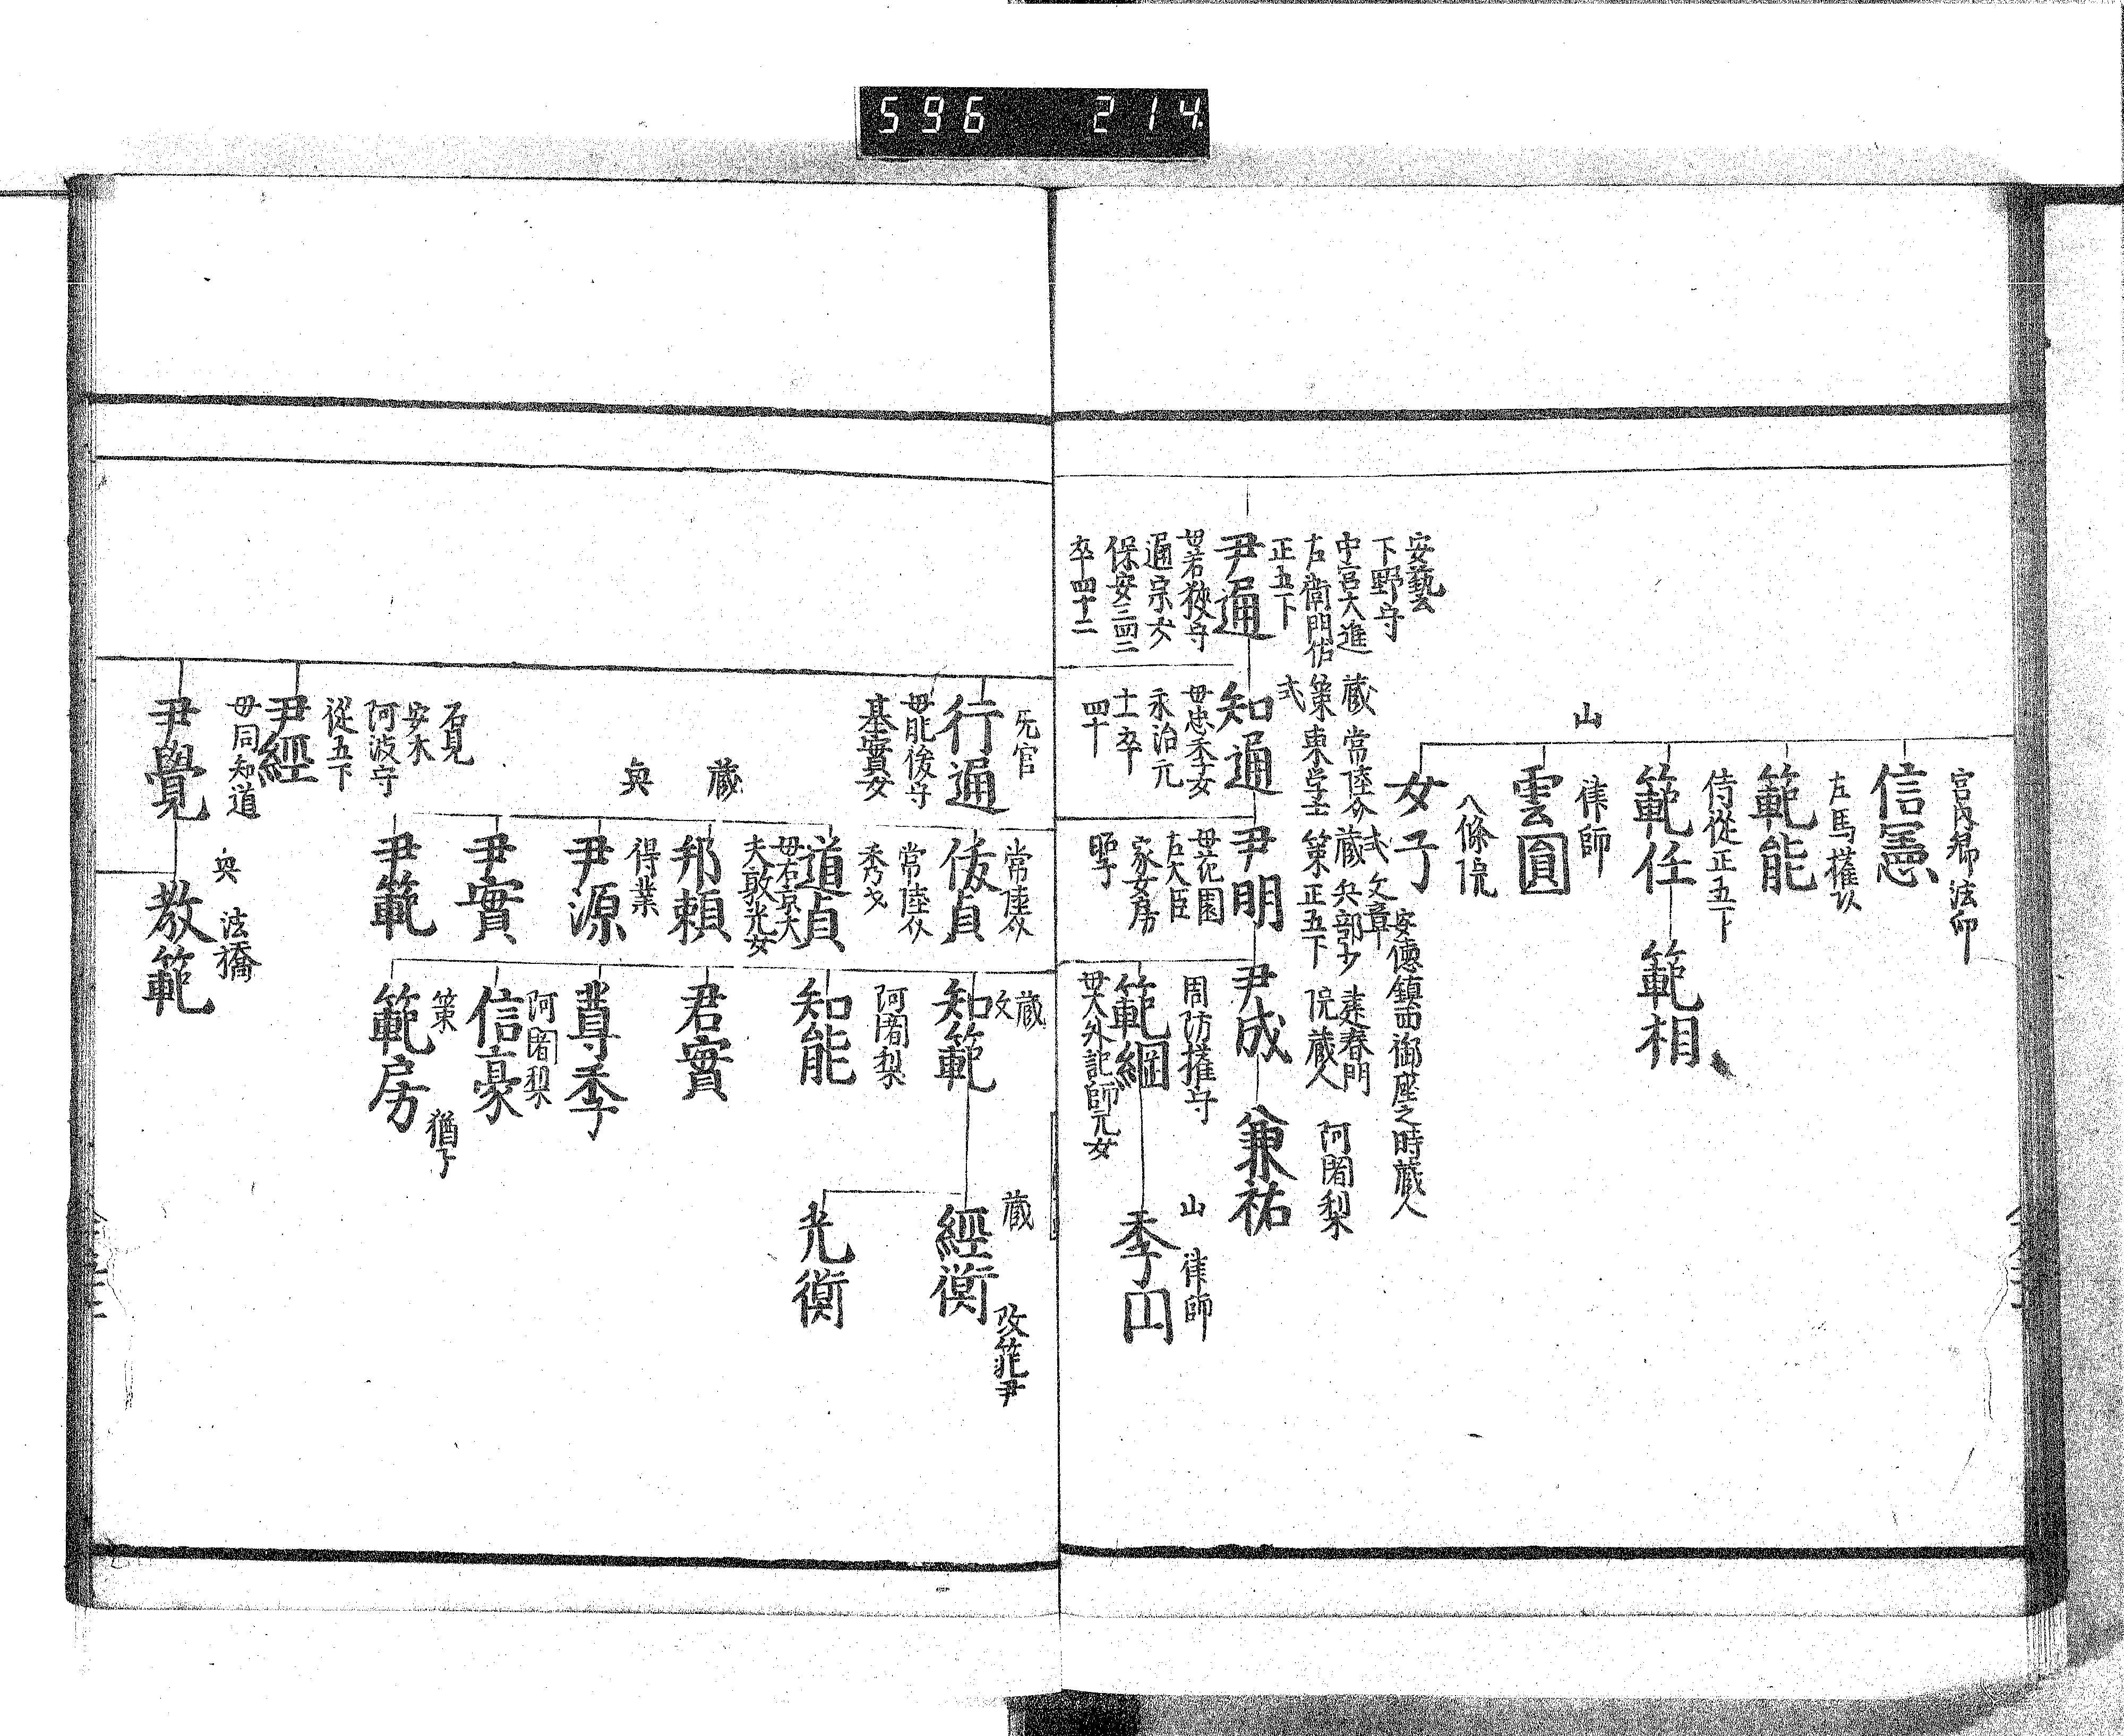 596 214
宮内卿法印
信憲
左馬権
範能
侍従正五下
範任
範相
山
律師
雲圓
八條院
女子
安藝
下野守
中宮大進
左衛門佐
正五下
尹通
母若狹守
通宗女
保安三四二
卒四十二
蔵 常陸介
策東学士
式
知通
母忠季女
永治元
十一卒
四十
式 文章
蔵 兵部少
策 正五下
尹明
母花園
左大臣
家女房
安徳鎮西御座之時蔵人
建春門
院蔵人
尹成
阿闍梨
兼祐
周防権守
範綱
母大外記師元女
山 律師
季円
无官
行通
母能後守
基實女
常陸介
俊貞
常陸介
秀才
道貞
母右京大
夫敦光女
蔵
邦頼
得業
尹源
尹實
尹範
蔵
文
知範
阿闍梨
知能
君實
尊季
阿闍梨
信豪
策
範房
猶子
蔵
經衡
改範尹
光衡
石見
安木
阿波守
従五下
尹經
母同知道
尹覺
法橋
教範